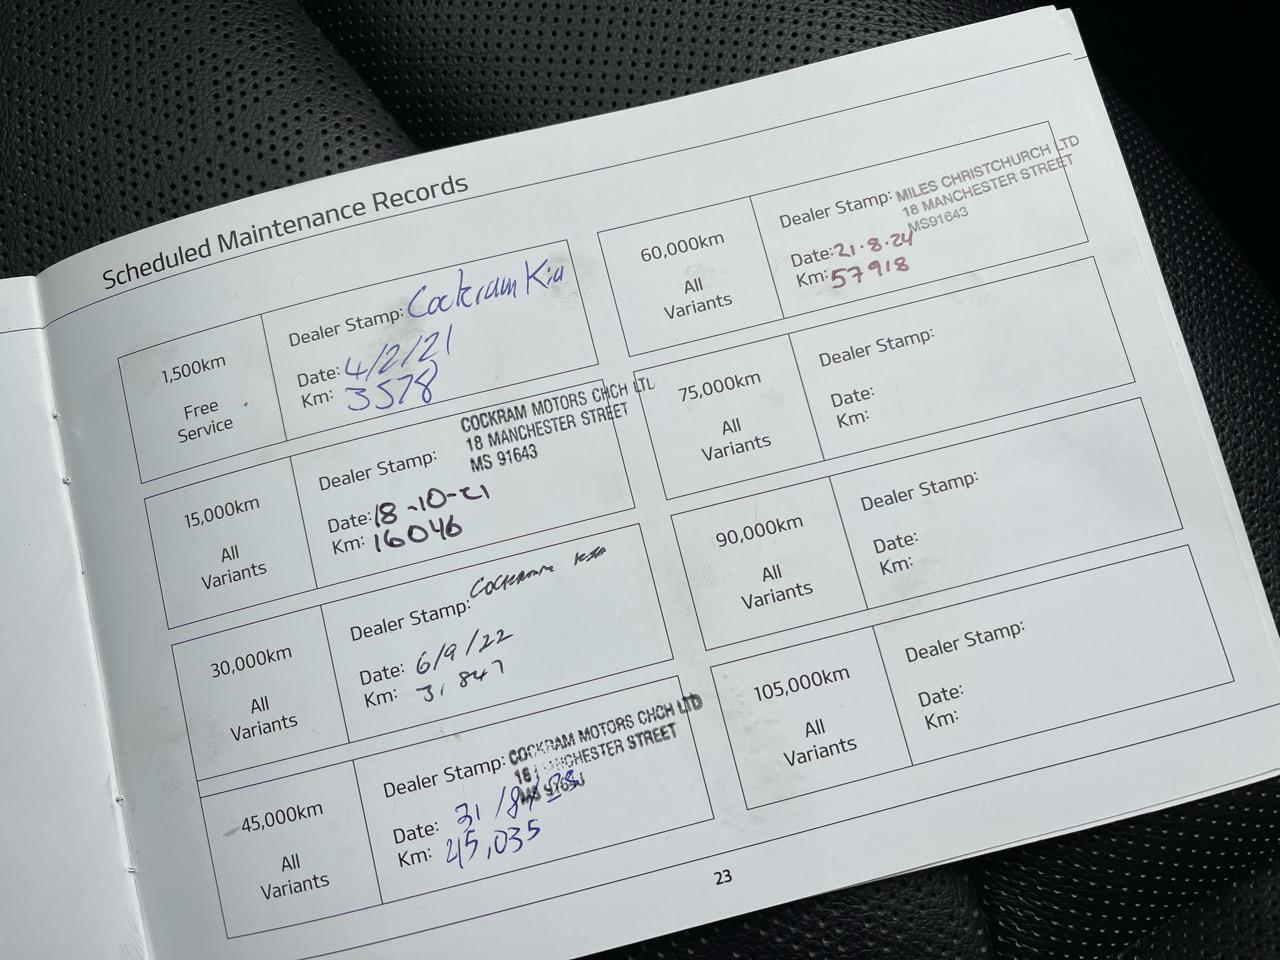 Scheduled Maintenance Records
1,500km
Free
Service
Dealer Stamp: Cockram Kia
Date: 4/2/21
Km: 3578
15,000km
All
Variants
Dealer Stamp:
COCKRAM MOTORS CHCH LTD
18 MANCHESTER STREET
MS 91643
Date: 18-10-21
Km: 16046
30,000km
All
Variants
Dealer Stamp: Cockram Kia
Date: 6/9/22
Km: 31,847
45,000km
All
Variants
Dealer Stamp: COCKRAM MOTORS CHCH LTD
18 MANCHESTER STREET
MS 91643
Date: 31/8/23
Km: 45,035
60,000km
All
Variants
Dealer Stamp: MILES CHRISTCHURCH LTD
18 MANCHESTER STREET
MS91643
Date: 21.8.24
Km: 57918
75,000km
All
Variants
Dealer Stamp:
Date:
Km:
90,000km
All
Variants
Dealer Stamp:
Date:
Km:
105,000km
All
Variants
Dealer Stamp:
Date:
Km:
23